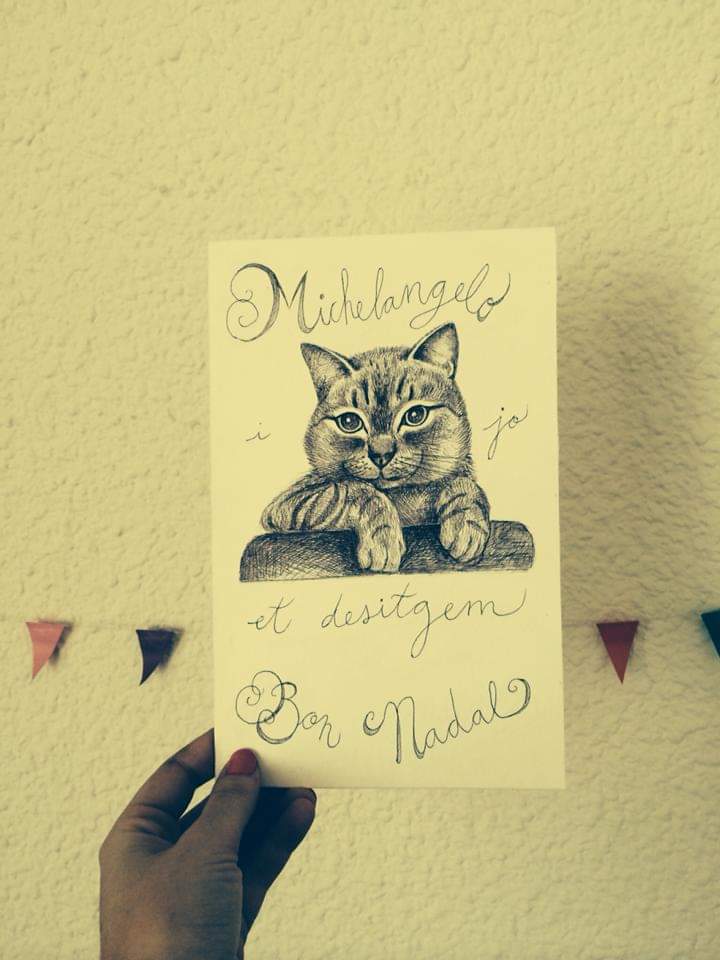 Michelangelo
i jo
et desitgem
Bon Nadal